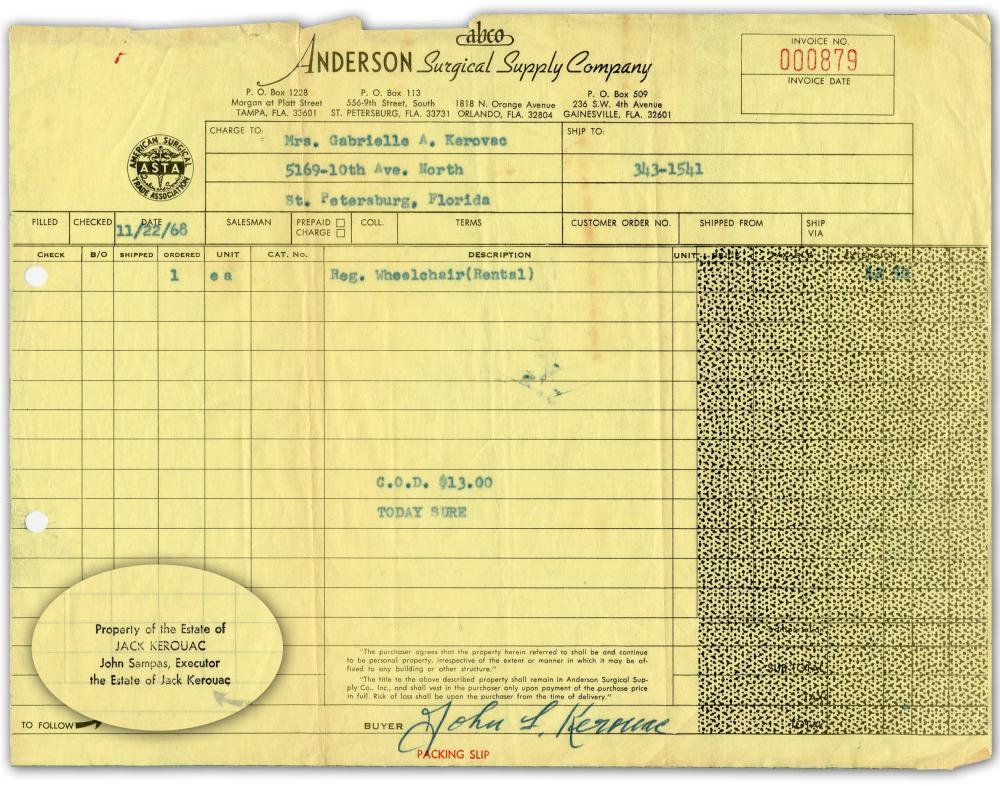 abco
ANDERSON Surgical Supply Company
INVOICE NO.
000879
INVOICE DATE
P. O. Box 1228
Morgan at Platt Street
TAMPA, FLA. 33601
P. O. Box 113
556-9th Street, South
ST. PETERSBURG, FLA. 33731
1818 N. Orange Avenue
ORLANDO, FLA. 32804
P. O. Box 509
236 S.W. 4th Avenue
GAINESVILLE, FLA. 32601
AMERICAN SURGICAL
ASTA
TRADE ASSOCIATION
CHARGE TO:
Mrs. Gabrielle A. Kerovac
5169-10th Ave. North
St. Petersburg, Florida
SHIP TO:
343-1541
FILLED CHECKED DATE SALESMAN PREPAID COLL. TERMS CUSTOMER ORDER NO. SHIPPED FROM SHIP
CHARGE VIA
11/22/68
CHECK B/O SHIPPED ORDERED UNIT CAT. No. DESCRIPTION UNIT
1 ea Reg. Wheelchair(Rental)
C.O.D. $13.00
TODAY SURE
Property of the Estate of
JACK KEROUAC
John Sampas, Executor
the Estate of Jack Kerouac
"The purchaser agrees that the property herein referred to shall be and continue
to be personal property, irrespective of the extent or manner in which it may be af-
fixed to any building or other structure."
"The title to the above described property shall remain in Anderson Surgical Sup-
ply Co., Inc., and shall vest in the purchaser only upon payment of the purchase price
in full. Risk of loss shall be upon the purchaser from the time of delivery."
TO FOLLOW
BUYER John L. Kerouac
PACKING SLIP